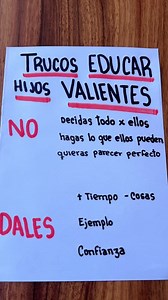 TRUCOS EDUCAR
HIJOS VALIENTES
NO
Decidas Todo x ellos
hagas lo que ellos pueden
quieras parecer perfecto
DALES
+ Tiempo - Cosas
Ejemplo
Confianza